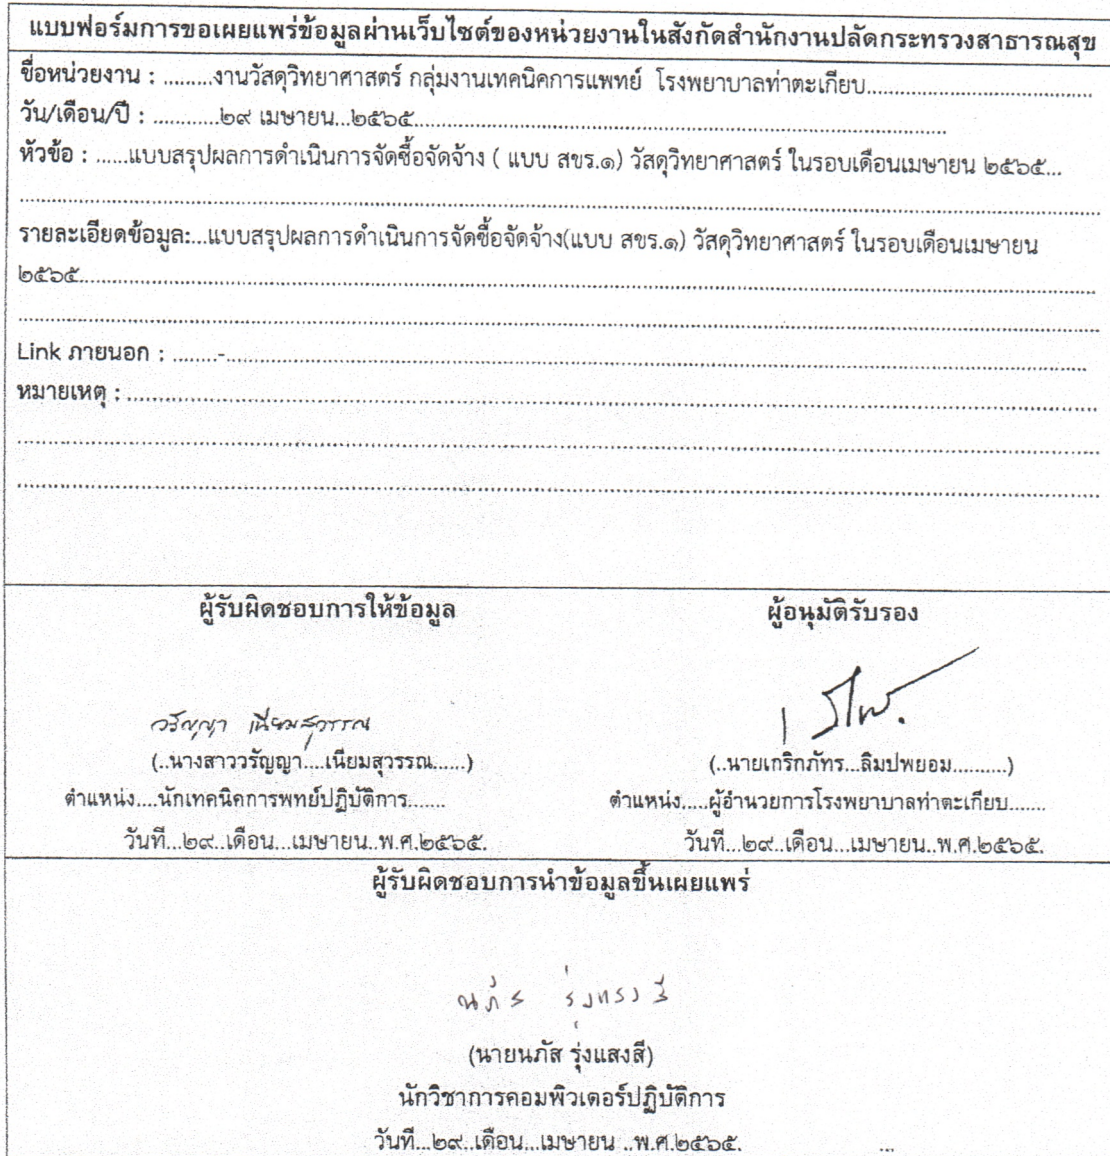 แบบฟอร์มการขอเผยแพร่ข้อมูลผ่านเว็บไซต์ของหน่วยงานในสังกัดสำนักงานปลัดกระทรวงสาธารณสุข
ชื่อหน่วยงาน : .........งานวัสดุวิทยาศาสตร์ กลุ่มงานเทคนิคการแพทย์ โรงพยาบาลท่าตะเกียบ.............................................
วัน/เดือน/ปี : ............๒๙ เมษายน...๒๕๖๕.............................................
หัวข้อ : ......แบบสรุปผลการดำเนินการจัดซื้อจัดจ้าง ( แบบ สขร.๑) วัสดุวิทยาศาสตร์ ในรอบเดือนเมษายน ๒๕๖๕...
รายละเอียดข้อมูล:...แบบสรุปผลการดำเนินการจัดซื้อจัดจ้าง(แบบ สขร.๑) วัสดุวิทยาศาสตร์ ในรอบเดือนเมษายน
๒๕๖๕.............................................
Link ภายนอก : ........-.............................................
หมายเหตุ : .............................................
ผู้รับผิดชอบการให้ข้อมูล ผู้อนุมัติรับรอง
วรัญญา เนียมสุวรรณ
(..นางสาววรัญญา....เนียมสุวรรณ......) (..นายเกริกภัทร...ลิมปพยอม..........)
ตำแหน่ง....นักเทคนิคการพทย์ปฏิบัติการ....... ตำแหน่ง.....ผู้อำนวยการโรงพยาบาลท่าตะเกียบ.......
วันที่...๒๙..เดือน...เมษายน..พ.ศ.๒๕๖๕. วันที่...๒๙..เดือน...เมษายน..พ.ศ.๒๕๖๕.
ผู้รับผิดชอบการนำข้อมูลขึ้นเผยแพร่
นภัส รุ่งแสงสี
(นายนภัส รุ่งแสงสี)
นักวิชาการคอมพิวเตอร์ปฏิบัติการ
วันที่...๒๙..เดือน...เมษายน ..พ.ศ.๒๕๖๕. ...